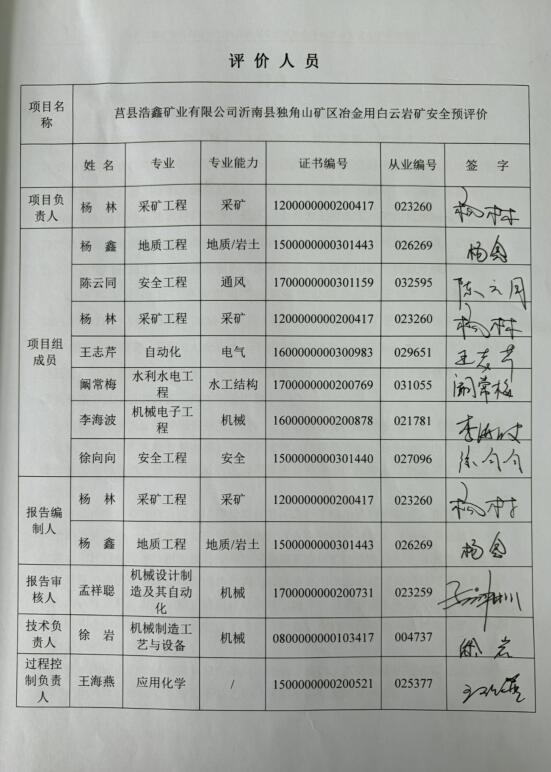 评价人员
项目名称 莒县浩鑫矿业有限公司沂南县独角山矿区冶金用白云岩矿安全预评价
姓名 专业 专业能力 证书编号 从业编号 签字
项目负责人 杨林 采矿工程 采矿 1200000000200417 023260 杨林
项目组成员 杨鑫 地质工程 地质/岩土 1500000000301443 026269 杨鑫
陈云同 安全工程 通风 1700000000301159 032595 陈云同
杨林 采矿工程 采矿 1200000000200417 023260 杨林
王志芹 自动化 电气 1600000000300983 029651 王志芹
阚常梅 水利水电工程 水工结构 1700000000200769 031055 阚常梅
李海波 机械电子工程 机械 1600000000200878 021781 李海波
徐向向 安全工程 安全 1500000000301440 027096 徐向向
报告编制人 杨林 采矿工程 采矿 1200000000200417 023260 杨林
杨鑫 地质工程 地质/岩土 1500000000301443 026269 杨鑫
报告审核人 孟祥聪 机械设计制造及其自动化 机械 1700000000200731 023259
技术负责人 徐岩 机械制造工艺与设备 机械 0800000000103417 004737 徐岩
过程控制负责人 王海燕 应用化学 / 1500000000200521 025377 王海燕